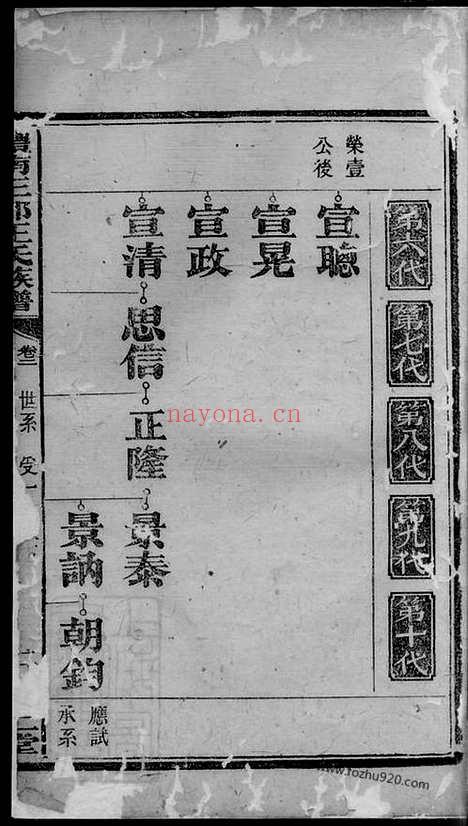 第六代
第七代
第八代
第九代
第十代
榮壹
公後
宣聰
宣晃
宣政
宣清
思信
正隆
景泰
景訥
朝鈞
應試
承系
南三郎王氏族譜
卷二
世系
nayona.cn
www.fozhu920.com